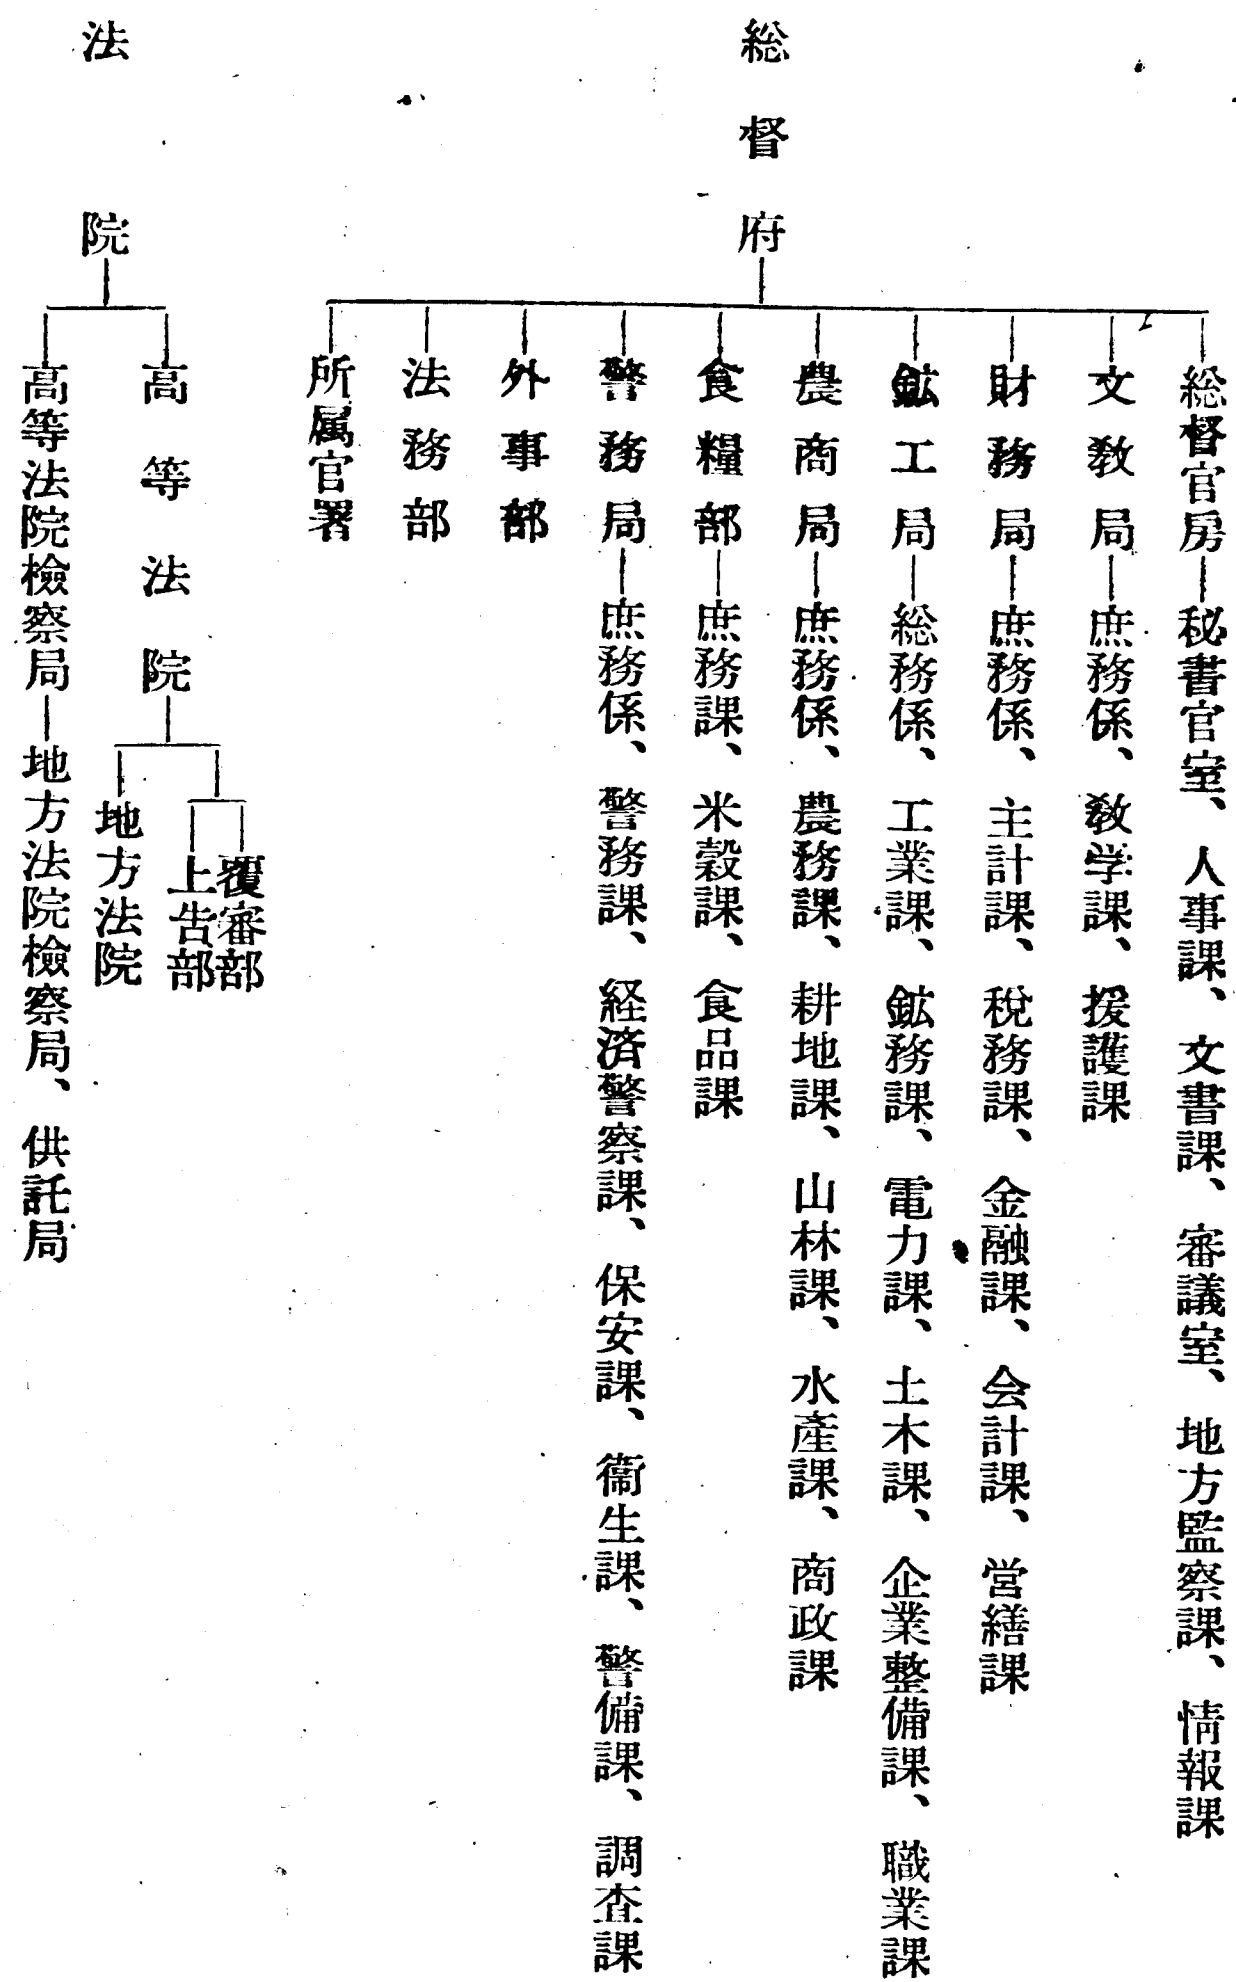 総督府
総督官房―秘書官室、人事課、文書課、審議室、地方監察課、情報課
文教局―庶務係、教学課、援護課
財務局―庶務係、主計課、税務課、金融課、会計課、営繕課
鉱工局―総務係、工業課、鉱務課、電力課、土木課、企業整備課、職業課
農商局―庶務係、農務課、耕地課、山林課、水産課、商政課
食糧部―庶務課、米穀課、食品課
警務局―庶務係、警務課、経済警察課、保安課、衞生課、警備課、調査課
外事部
法務部
所属官署
法院
高等法院
覆審部
上告部
地方法院
高等法院檢察局―地方法院檢察局、供託局